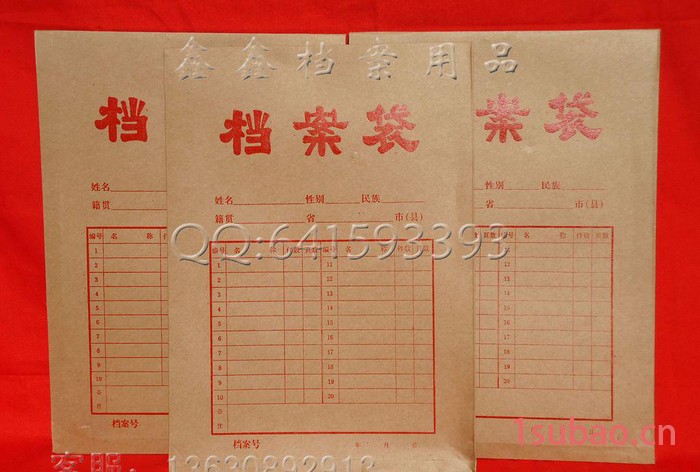 鑫鑫档案用品
档
档案袋
案袋
姓名
姓名 性别 民族
性别 民族
籍贯
籍贯 省 市(县)
省 市(县)
QQ:641593393
编号 名 称 件数
编号 名 称 件数 页数 编号 名 称 件数 页数
页数 编号 名 称 件数 页数
1
2
3
4
5
6
7
8
9
10
备
注
1 11
2 12
3 13
4 14
5 15
6 16
7 17
8 18
9 19
10 20
备
注
16
17
18
19
20
档案号
档案号 年 月 日
1subao.cn
客服:13630892913